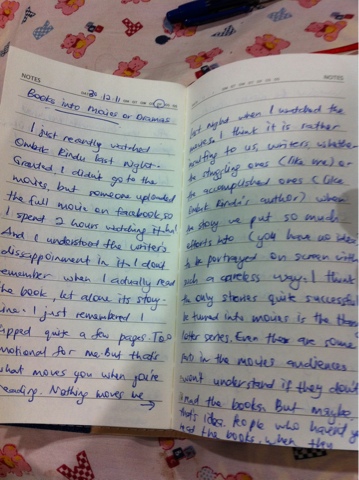 NOTES
30.12.11
Books into Movies or Dramas
I just recently watched
Ombak Rindu last night.
Granted I didn't go to the
movies, but someone uploaded
the full movie on facebook, so
I spent 2 hours watching it
And I understood the writer's
dissappoinment in it. I dont
remember when I actually read
the book, let alone its story
line. I just remembered I
quite a few pages. Too
emotional for me. But that's
what moves you when you're
reading. Nothing moves me
NOTES
last night when I watched the
movie. I think it is rather
to us, writers, whether
the struggling ones (like me) or
the accomplished ones (like
Ombak Rindu's author) when
the story we put so much
efforts into (you have no idea)
to be portrayed on screen with
such a careless way. I think
the only stories quite successful
be turned into movies is the
Potter series. Even there are some
in the movies audiences
won't understand if they dont
read the books. But maybe
that's idea. People who haven't
read the books, when they